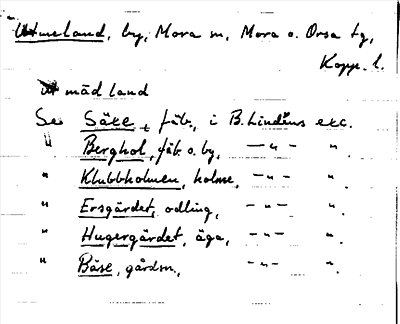 Utmeland, by, Mora sn, Mora o. Orsa tg,
Kopp. l.
ut mäd land
Se Säxe, fäb., i B. Lindéns exc.
" Berghol, fäb. o. by, —"— "
" Klubbholmen, holme, —"— "
" Ersgärdet, odling, —"— "
" Hugergärdet, äga, —"— "
" Båse, gårdsn., —"— "